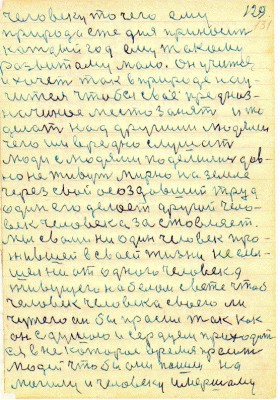 человеку то чего ему 129
природа уже дня приносит 131
каждый год ему такому
развитаму мало. Он учится
и хочет так в природе нау
читься чтобы своё предназ-
наченое место занять и
делать над другими людями
чего им вредно слушать
люди с людями поделились дав-
но не живут мирно на земле
через свой создавший труд
один его делает другой чело-
век человека заставляет.
ни один человек про-
живший в своей жизни не слы-
шел ни от одного человека
живущего на белом свете чтоб
человек человека своего ли
чужого ли бы просил так как
он с душою и сердцем приходит-
ся в некотором время просит
людей чтобы они пошли на
могилу к человеку умершему